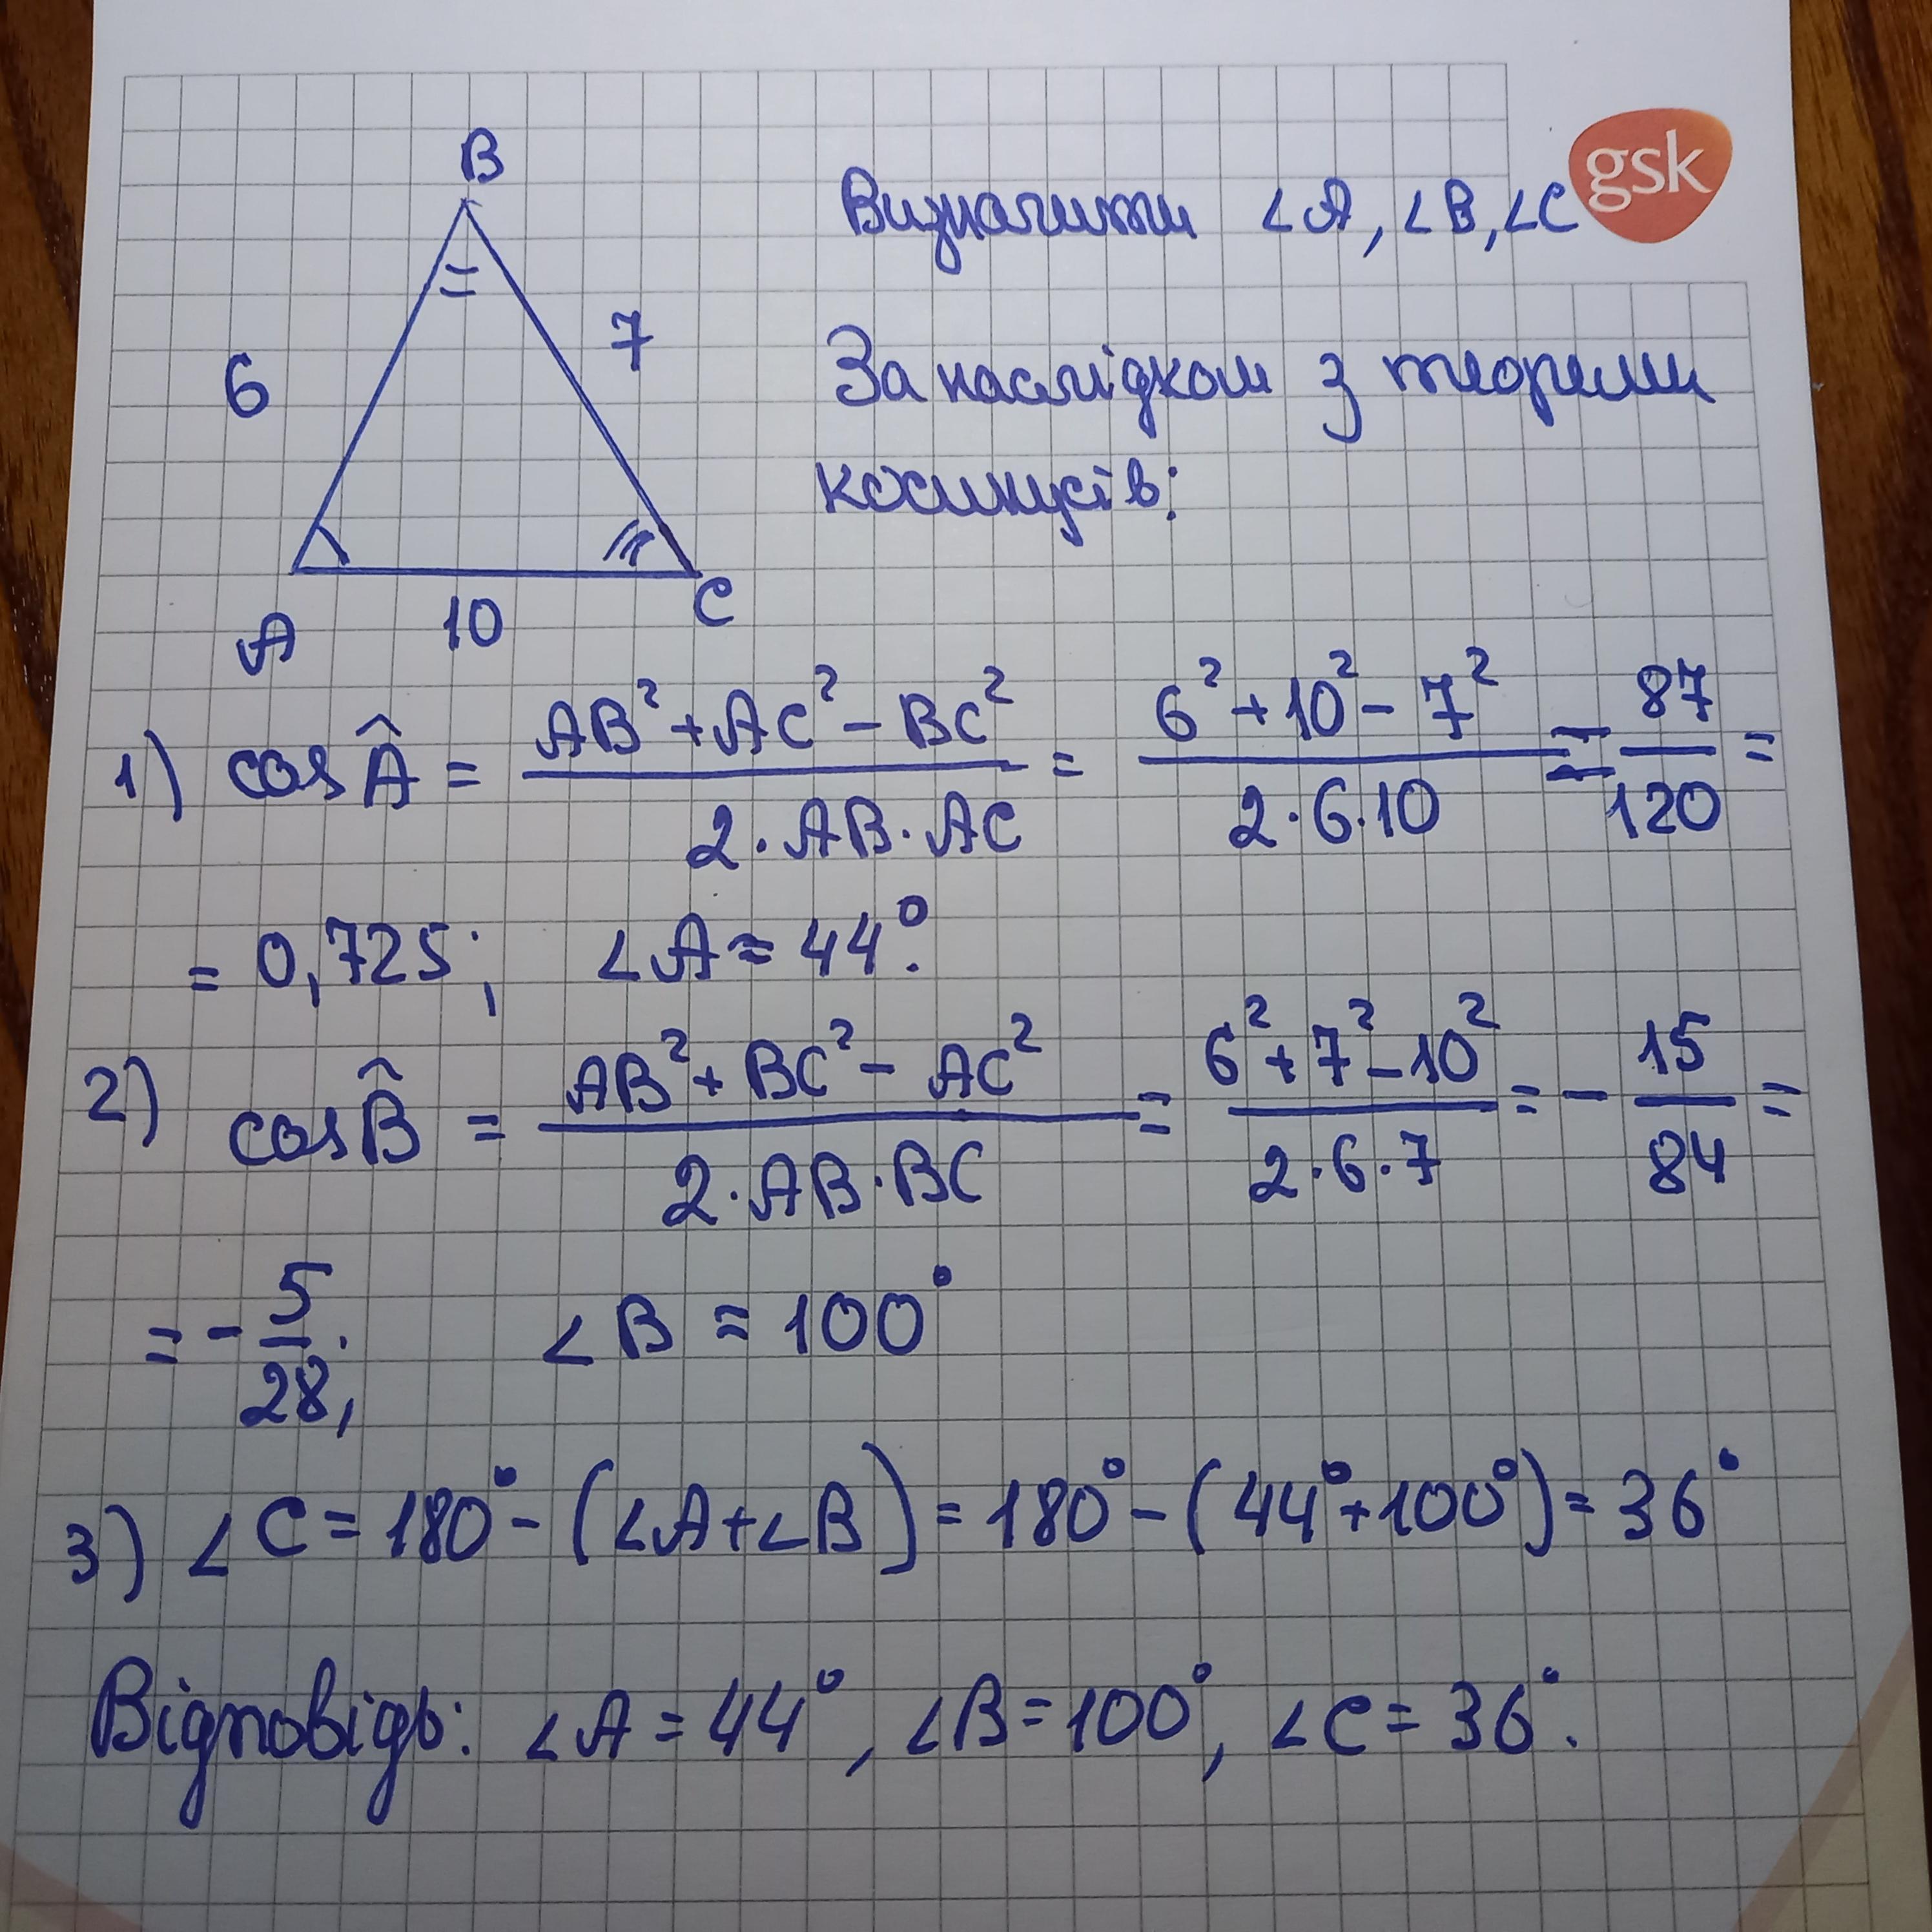 B
gsk
Визначити ∠A, ∠B, ∠C
6
7
За наслідком з теореми
косинусів:
A
10
C
1) cos Â = (AB² + AC² − BC²)/(2·AB·AC) = (6² + 10² − 7²)/(2·6·10) = 87/120 =
= 0,725; ∠A ≈ 44°.
2) cos B̂ = (AB² + BC² − AC²)/(2·AB·BC) = (6² + 7² − 10²)/(2·6·7) = − 15/84 =
= − 5/28; ∠B ≈ 100°
3) ∠C = 180° − (∠A + ∠B) = 180° − (44° + 100°) = 36°
Відповідь: ∠A = 44°, ∠B = 100°, ∠C = 36°.